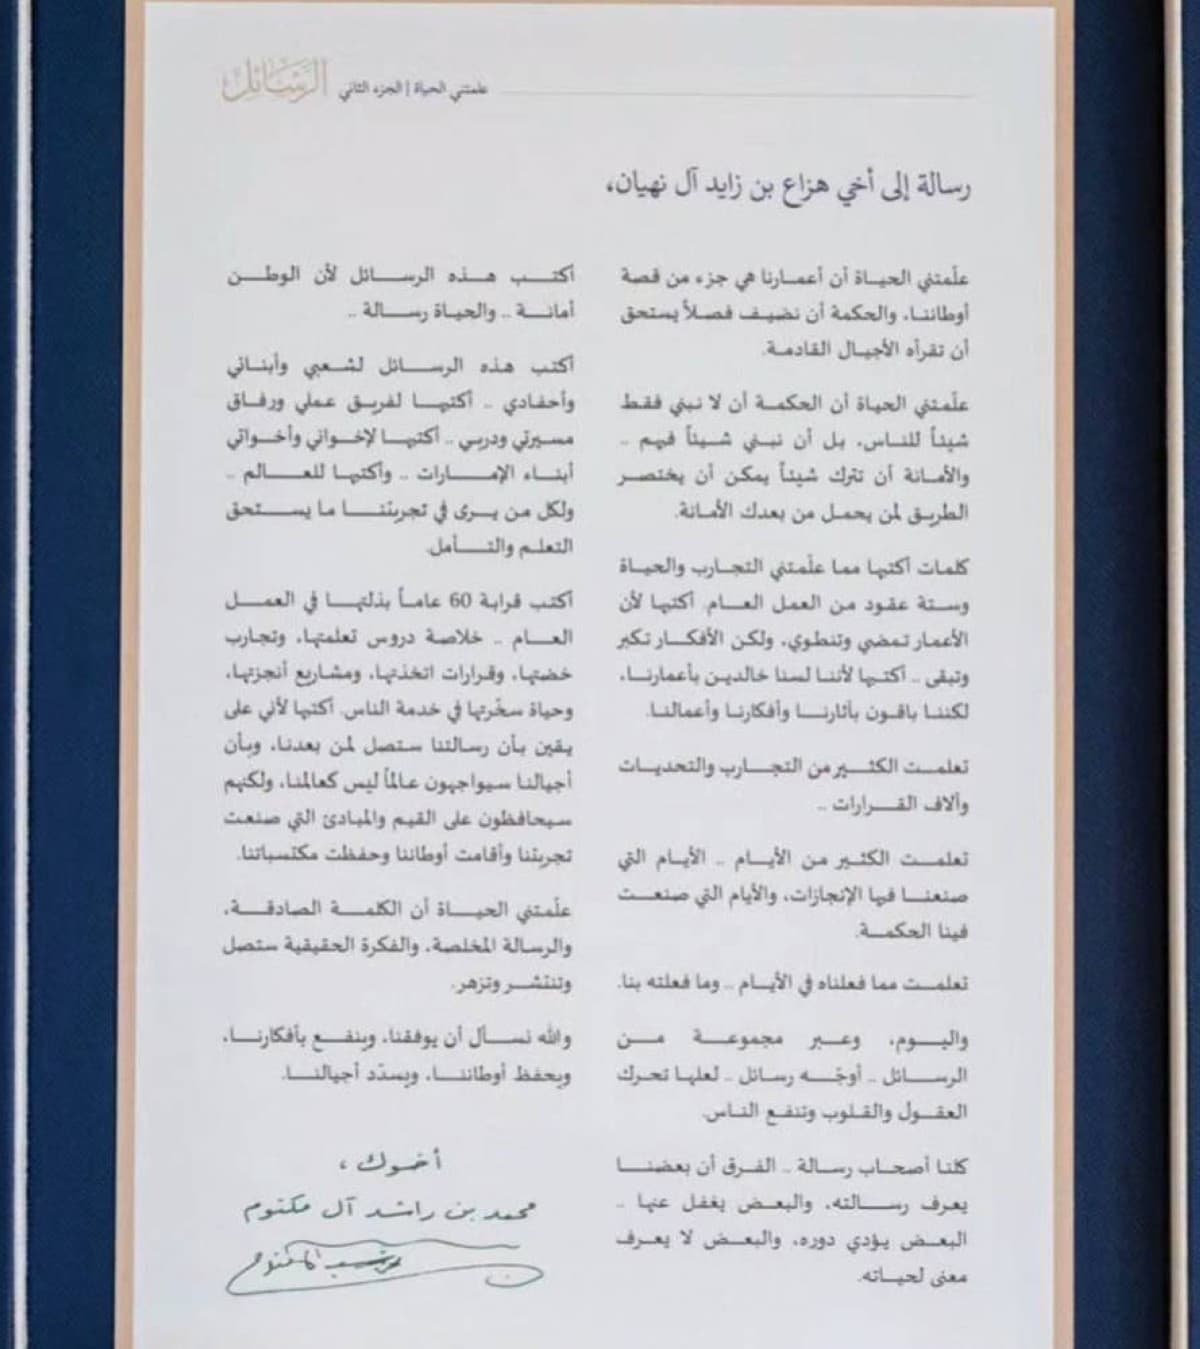 الرسائل
علمتني الحياة | الجزء الثاني
رسالة إلى أخي هزاع بن زايد آل نهيان،
علّمتني الحياة أن أعمارنا هي جزء من قصة
أوطاننا، والحكمة أن نضيف فصلاً يستحق
أن تقرأه الأجيال القادمة.
علّمتني الحياة أن الحكمة أن لا نبني فقط
شيئاً للناس، بل أن نبني شيئاً فيهم ..
والأمانة أن تترك شيئاً يمكن أن يختصر
الطريق لمن يحمل من بعدك الأمانة.
كلمات أكتبها مما علّمتني التجارب والحياة
وستة عقود من العمل العام. أكتبها لأن
الأعمار تمضي وتنطوي، ولكن الأفكار تكبر
وتبقى .. أكتبها لأننا لسنا خالدين بأعمارنا،
لكننا باقون بآثارنا وأفكارنا وأعمالنا.
تعلمت الكثير من التجارب والتحديات
وآلاف القرارات ..
تعلمت الكثير من الأيام .. الأيام التي
صنعنا فيها الإنجازات، والأيام التي صنعت
فينا الحكمة.
تعلمت مما فعلناه في الأيام .. وما فعلته بنا.
واليوم، وعبر مجموعة من
الرسائل .. أوجّه رسائل .. لعلها تحرك
العقول والقلوب وتنفع الناس.
كلنا أصحاب رسالة .. الفرق أن بعضنا
يعرف رسالته، والبعض يغفل عنها ..
البعض يؤدي دوره، والبعض لا يعرف
معنى لحياته.
أكتب هذه الرسائل لأن الوطن
أمانة .. والحياة رسالة ..
أكتب هذه الرسائل لشعبي وأبنائي
وأحفادي .. أكتبها لفريق عملي ورفاق
مسيرتي ودربي .. أكتبها لإخواني وأخواتي
أبناء الإمارات .. وأكتبها للعالم ..
ولكل من يرى في تجربتنا ما يستحق
التعلم والتأمل.
أكتب قرابة 60 عاماً بذلتها في العمل
العام .. خلاصة دروس تعلمتها، وتجارب
خضتها، وقرارات اتخذتها، ومشاريع أنجزتها،
وحياة سخّرتها في خدمة الناس. أكتبها لأني على
يقين بأن رسالتنا ستصل لمن بعدنا، وبأن
أجيالنا سيواجهون عالماً ليس كعالمنا، ولكنهم
سيحافظون على القيم والمبادئ التي صنعت
تجربتنا وأقامت أوطاننا وحفظت مكتسباتنا.
علّمتني الحياة أن الكلمة الصادقة،
والرسالة المخلصة، والفكرة الحقيقية ستصل
وتنتشر وتزهر.
والله نسأل أن يوفقنا، وينفع بأفكارنا،
ويحفظ أوطاننا، ويسدّد أجيالنا.
أخوك،
محمد بن راشد آل مكتوم